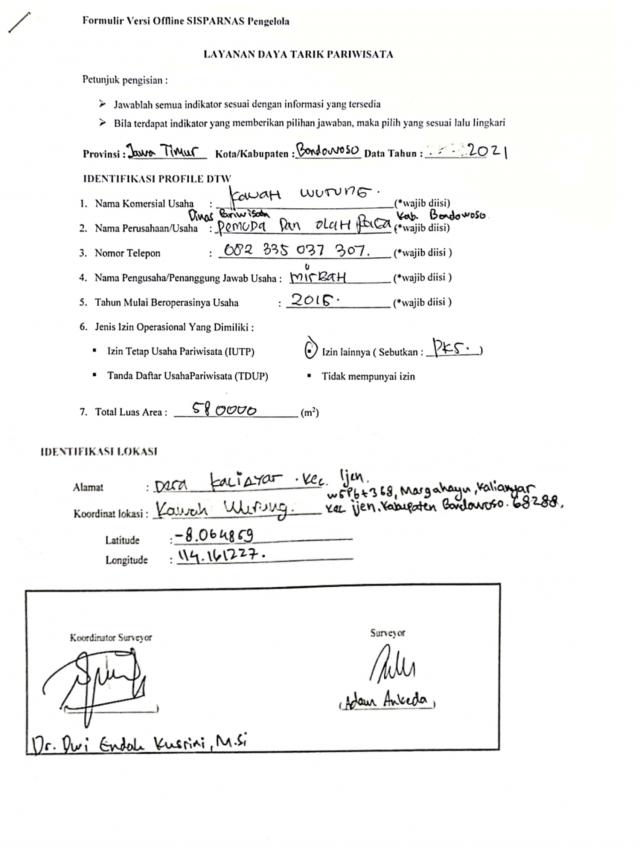 Formulir Versi Offline SISPARNAS Pengelola
LAYANAN DAYA TARIK PARIWISATA
Petunjuk pengisian :
➤ Jawablah semua indikator sesuai dengan informasi yang tersedia
➤ Bila terdapat indikator yang memberikan pilihan jawaban, maka pilih yang sesuai lalu lingkari
Provinsi : Jawa Timur Kota/Kabupaten : Bondowoso Data Tahun : 2021
IDENTIFIKASI PROFILE DTW
1. Nama Komersial Usaha : KAWAH WURUNG. (*wajib diisi)
Dinas Pariwisata Kab. Bondowoso
2. Nama Perusahaan/Usaha : PEMUDA DAN OLAH RAGA (*wajib diisi)
3. Nomor Telepon : 082 335 037 307. (*wajib diisi )
4. Nama Pengusaha/Penanggung Jawab Usaha : (*wajib diisi )
5. Tahun Mulai Beroperasinya Usaha : (*wajib diisi )
6. Jenis Izin Operasional Yang Dimiliki :
▪ Izin Tetap Usaha Pariwisata (IUTP) ▪ Izin lainnya ( Sebutkan : PKS. )
▪ Tanda Daftar UsahaPariwisata (TDUP) ▪ Tidak mempunyai izin
7. Total Luas Area : 580000 (m²)
IDENTIFIKASI LOKASI
Alamat : KALIANYAR . KEC. Ijen.
Margahayu, Kalianyar
Koordinat lokasi : Kawah Wurung. Kec ijen, Kabupaten Bondowoso. 68288,
Latitude : -8.064859
Longitude : 114.161227.
Koordinator Surveyor Surveyor
(Adam Ankeda)
Dr. Dwi Endah Kusrini, M.Si